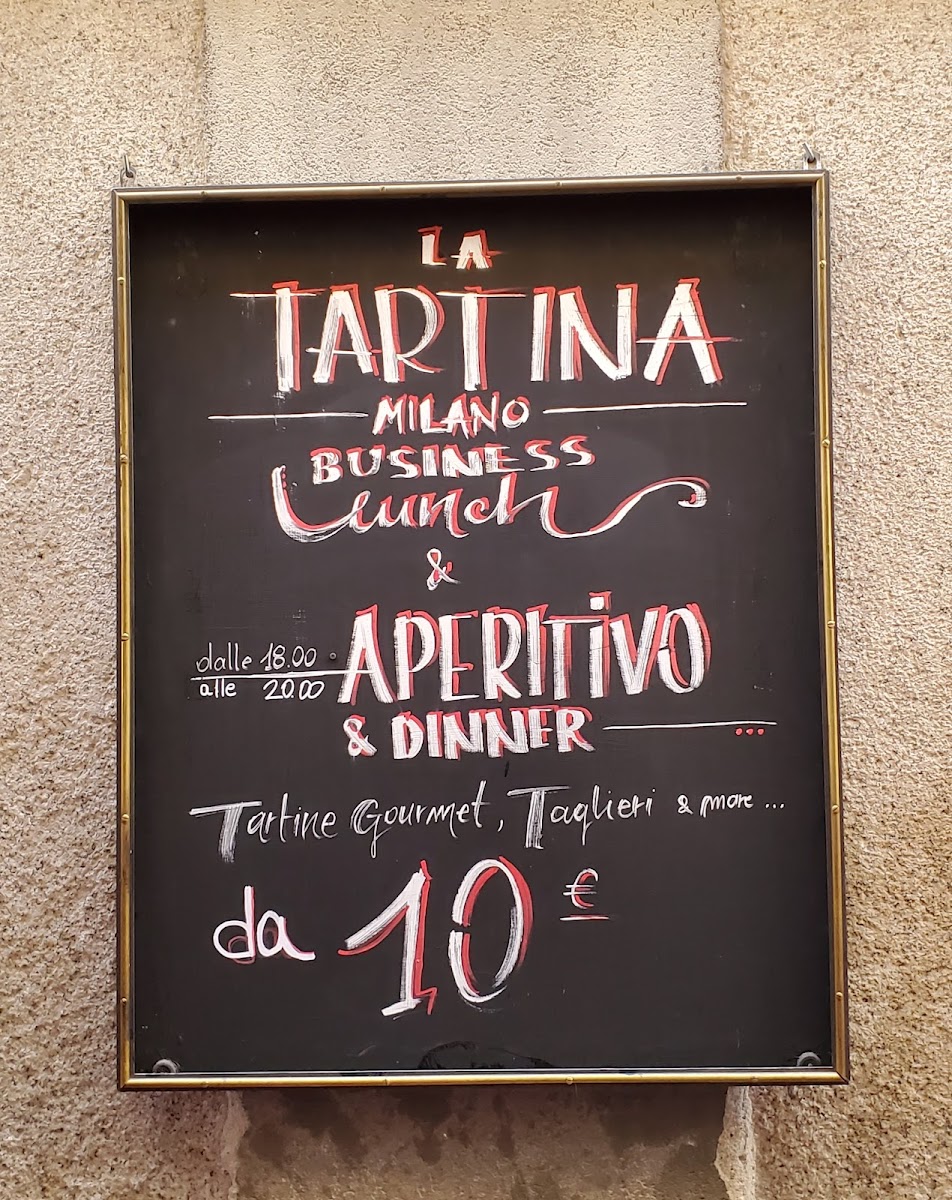 LA
TARTINA
MILANO
BUSINESS
Lunch
&
dalle 18.00
alle 20.00
APERITiVO
& DINNER ...
Tartine Gourmet, Taglieri & more ...
da 10 €